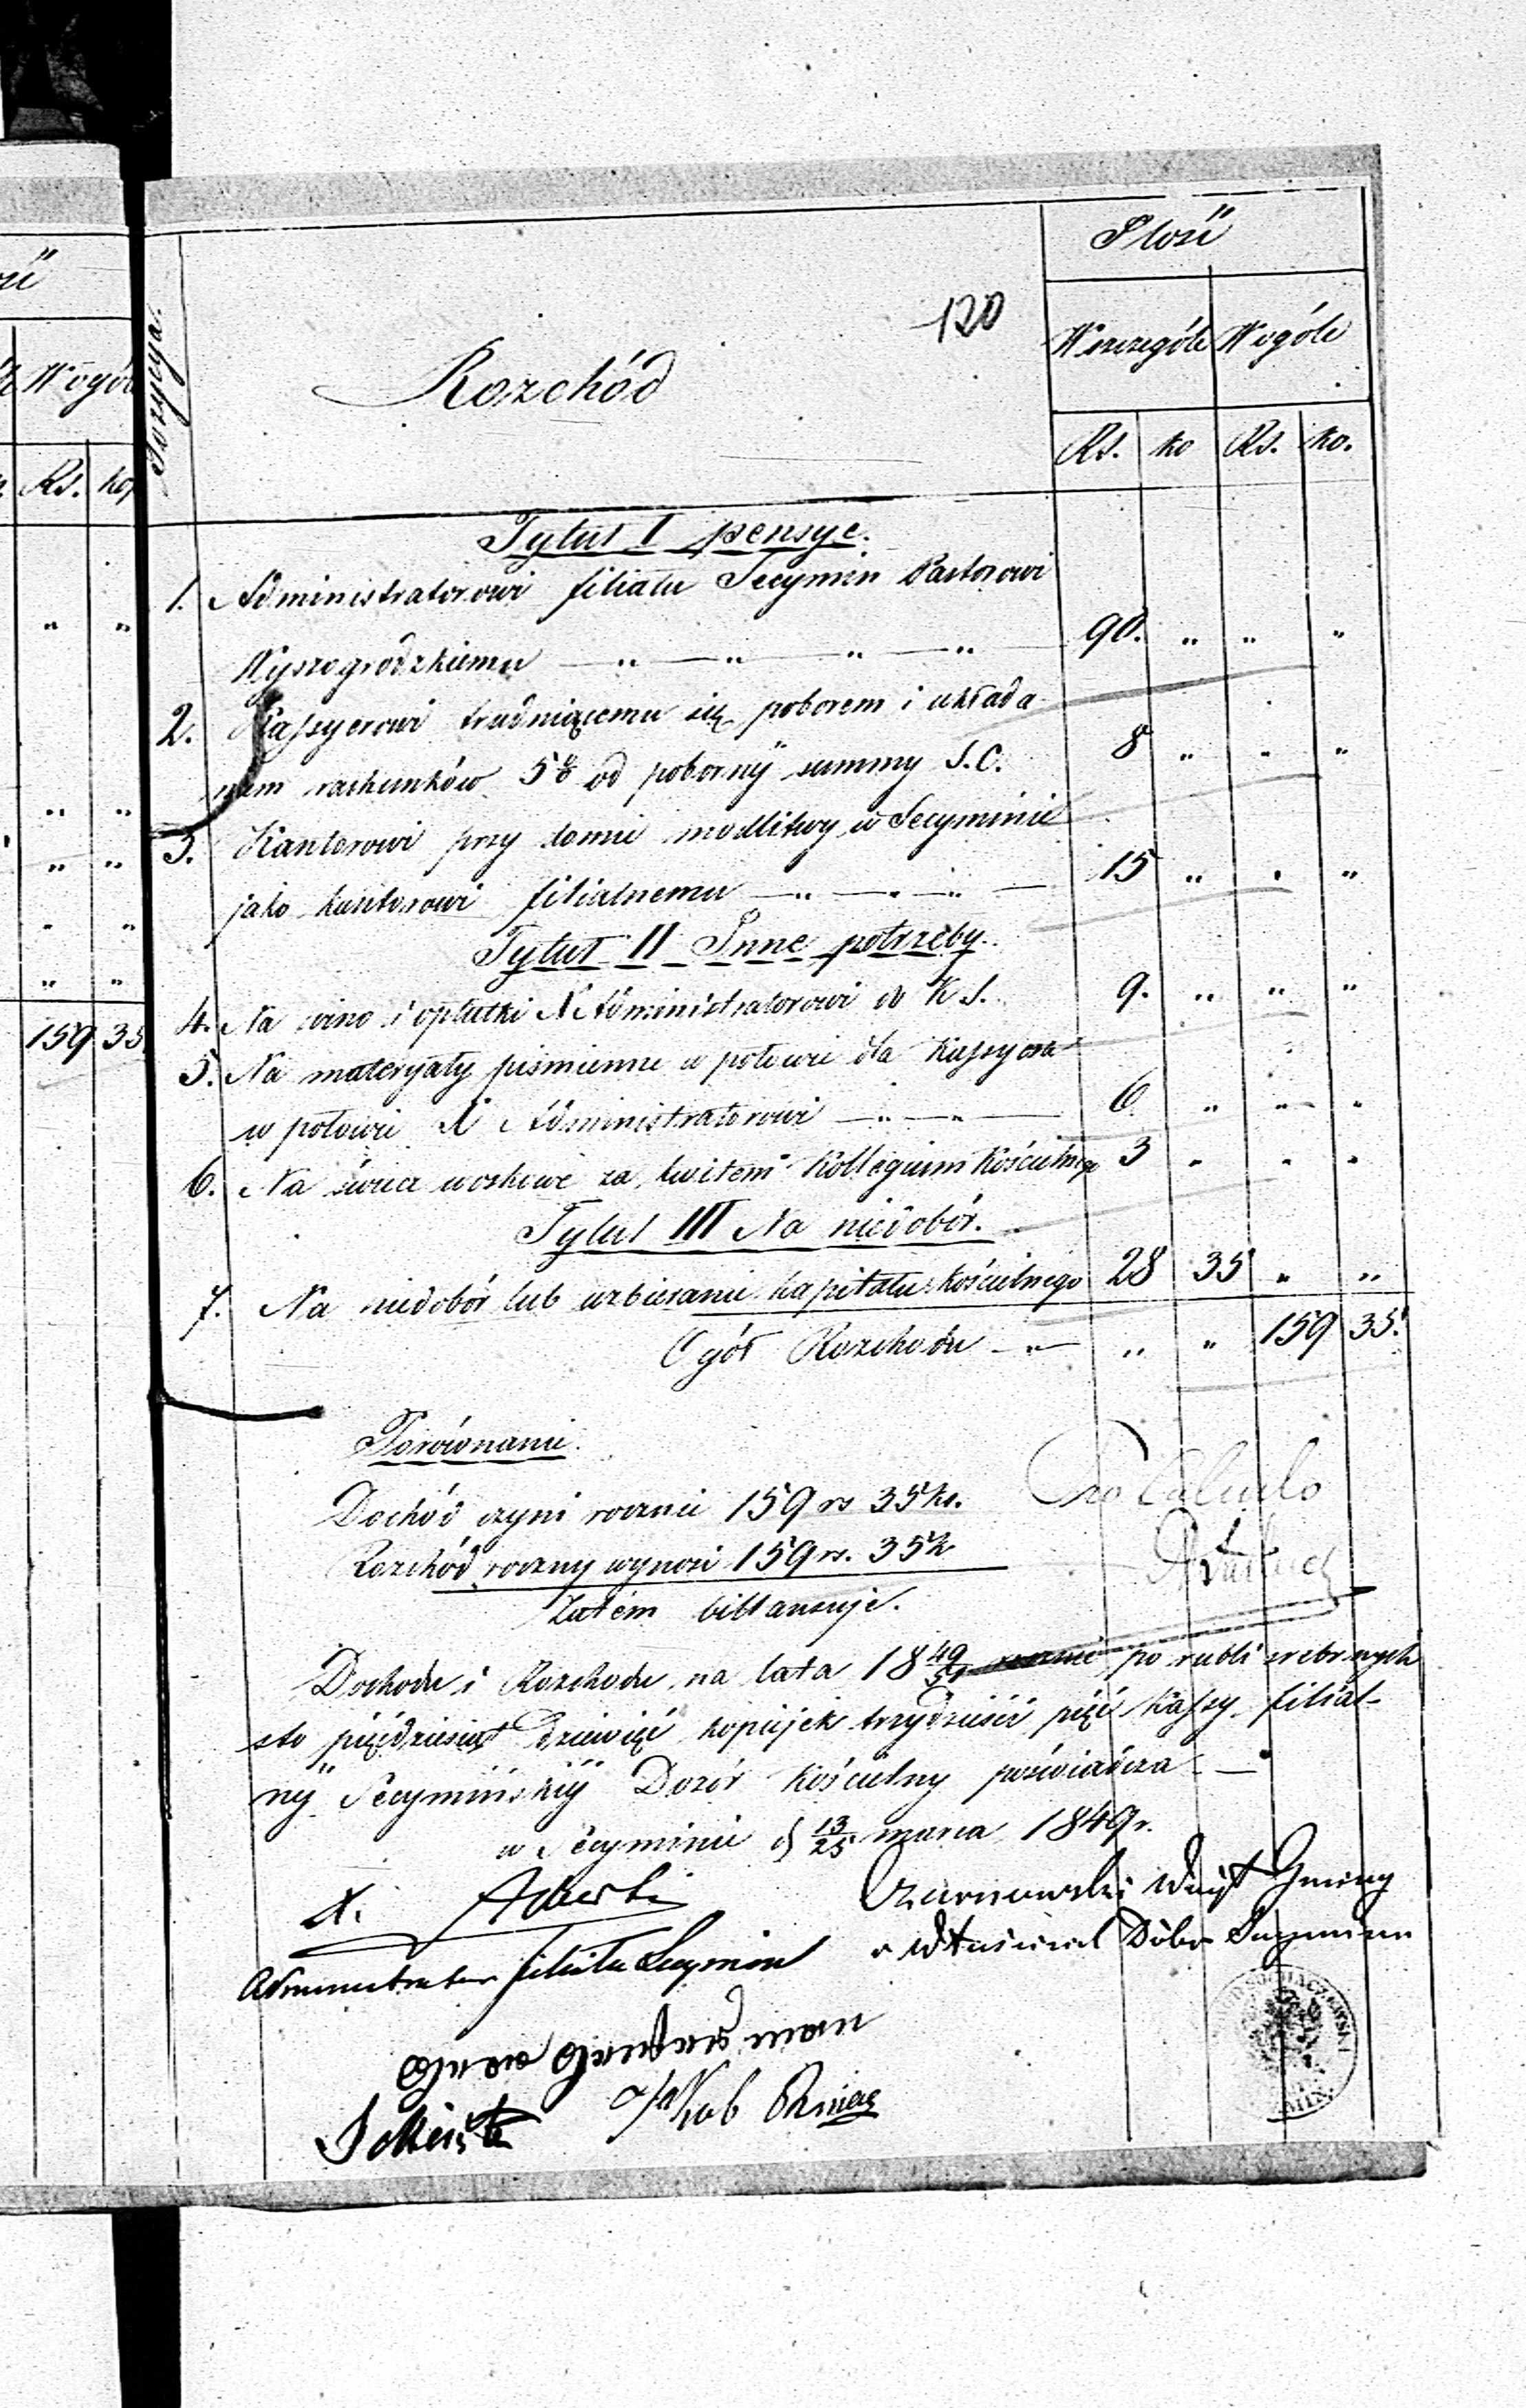 Wogól
Rs. ko
159 35
Pozycya.
Rozchód
120
Ilość
Wszczególe Wogóle
Rs. ko Rs. ko.
Tytuł I pensye.
1. Administratorowi filiału Secymin Pastorowi
Wyszogrodzkiemu — " — " — " — " 90. " " "
2. Kassyerowi trudniącemu się poborem i układa-
niem rachunków 5% od poborny summy S.C. 8 " " "
3. Kantorowi przy domu modlitwy w Secyminie
jako kantorowi filialnemu — " — " — " — 15 " " "
Tytuł II Inne potrzeby.
4. Na wino i opłatki X Administratorowi do K.S. 9. " " "
5. Na materyały piśmienne w połowie dla Kassyera
w połowie X Administratorowi — " — " — 6 " " "
6. Na świece woskowe za kwitem Kollegium Kościelnego 3 " " "
Tytuł III Na niedobór.
7. Na niedobór lub uzbieranie kapitału kościelnego 28 35 " "
Ogół Rozchodu — " — " " 159 35.
Porównanie.
Dochód czyni rocznie 159 rs 35 ko.
Rozchód roczny wynosi 159 rs. 35 k
Zatem billansuje.
Pro Calculo
Dochodu i Rozchodu na lata 18 49/51 rocznie po rubli srebrnych
sto pięćdziesiąt dziewięć kopiejek trzydzieści pięć Kassy filial-
ny Secymińskiy Dozór kościelny poświadcza —
w Secyminie d 13/25 marca 1849 r.
X.
Czarnowski Wójt Gminy
Administrator filiału Secymin
i Właściciel Dóbr Secymina
Jakob